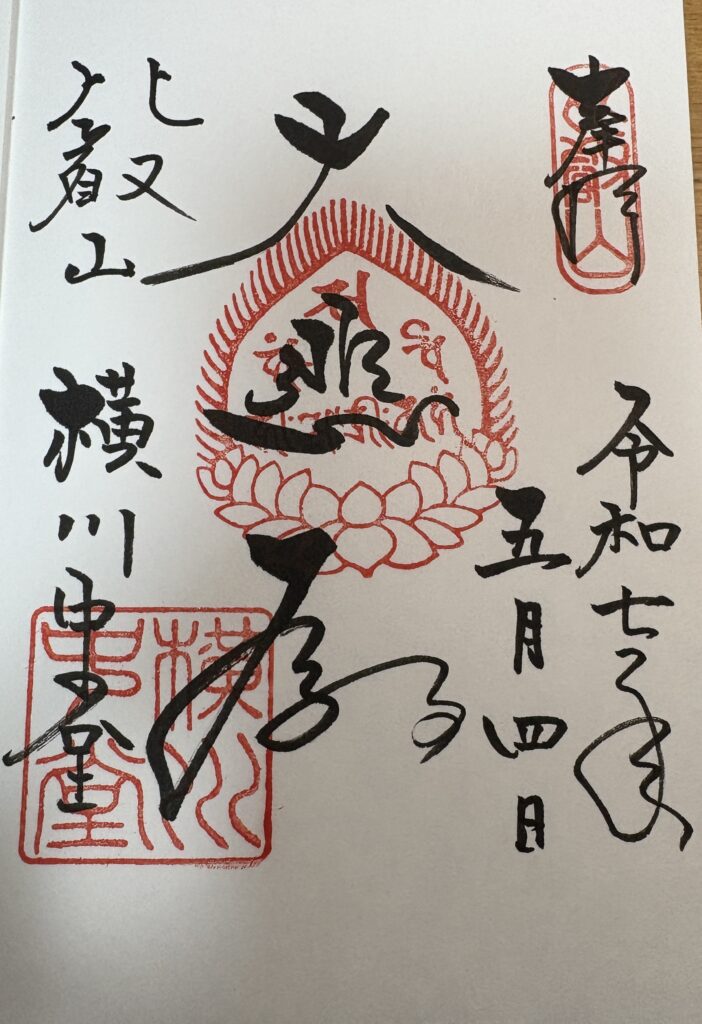 奉拝
比叡山
令和七年
五月四日
大悲殿
比叡山
横川中堂
横川
中堂